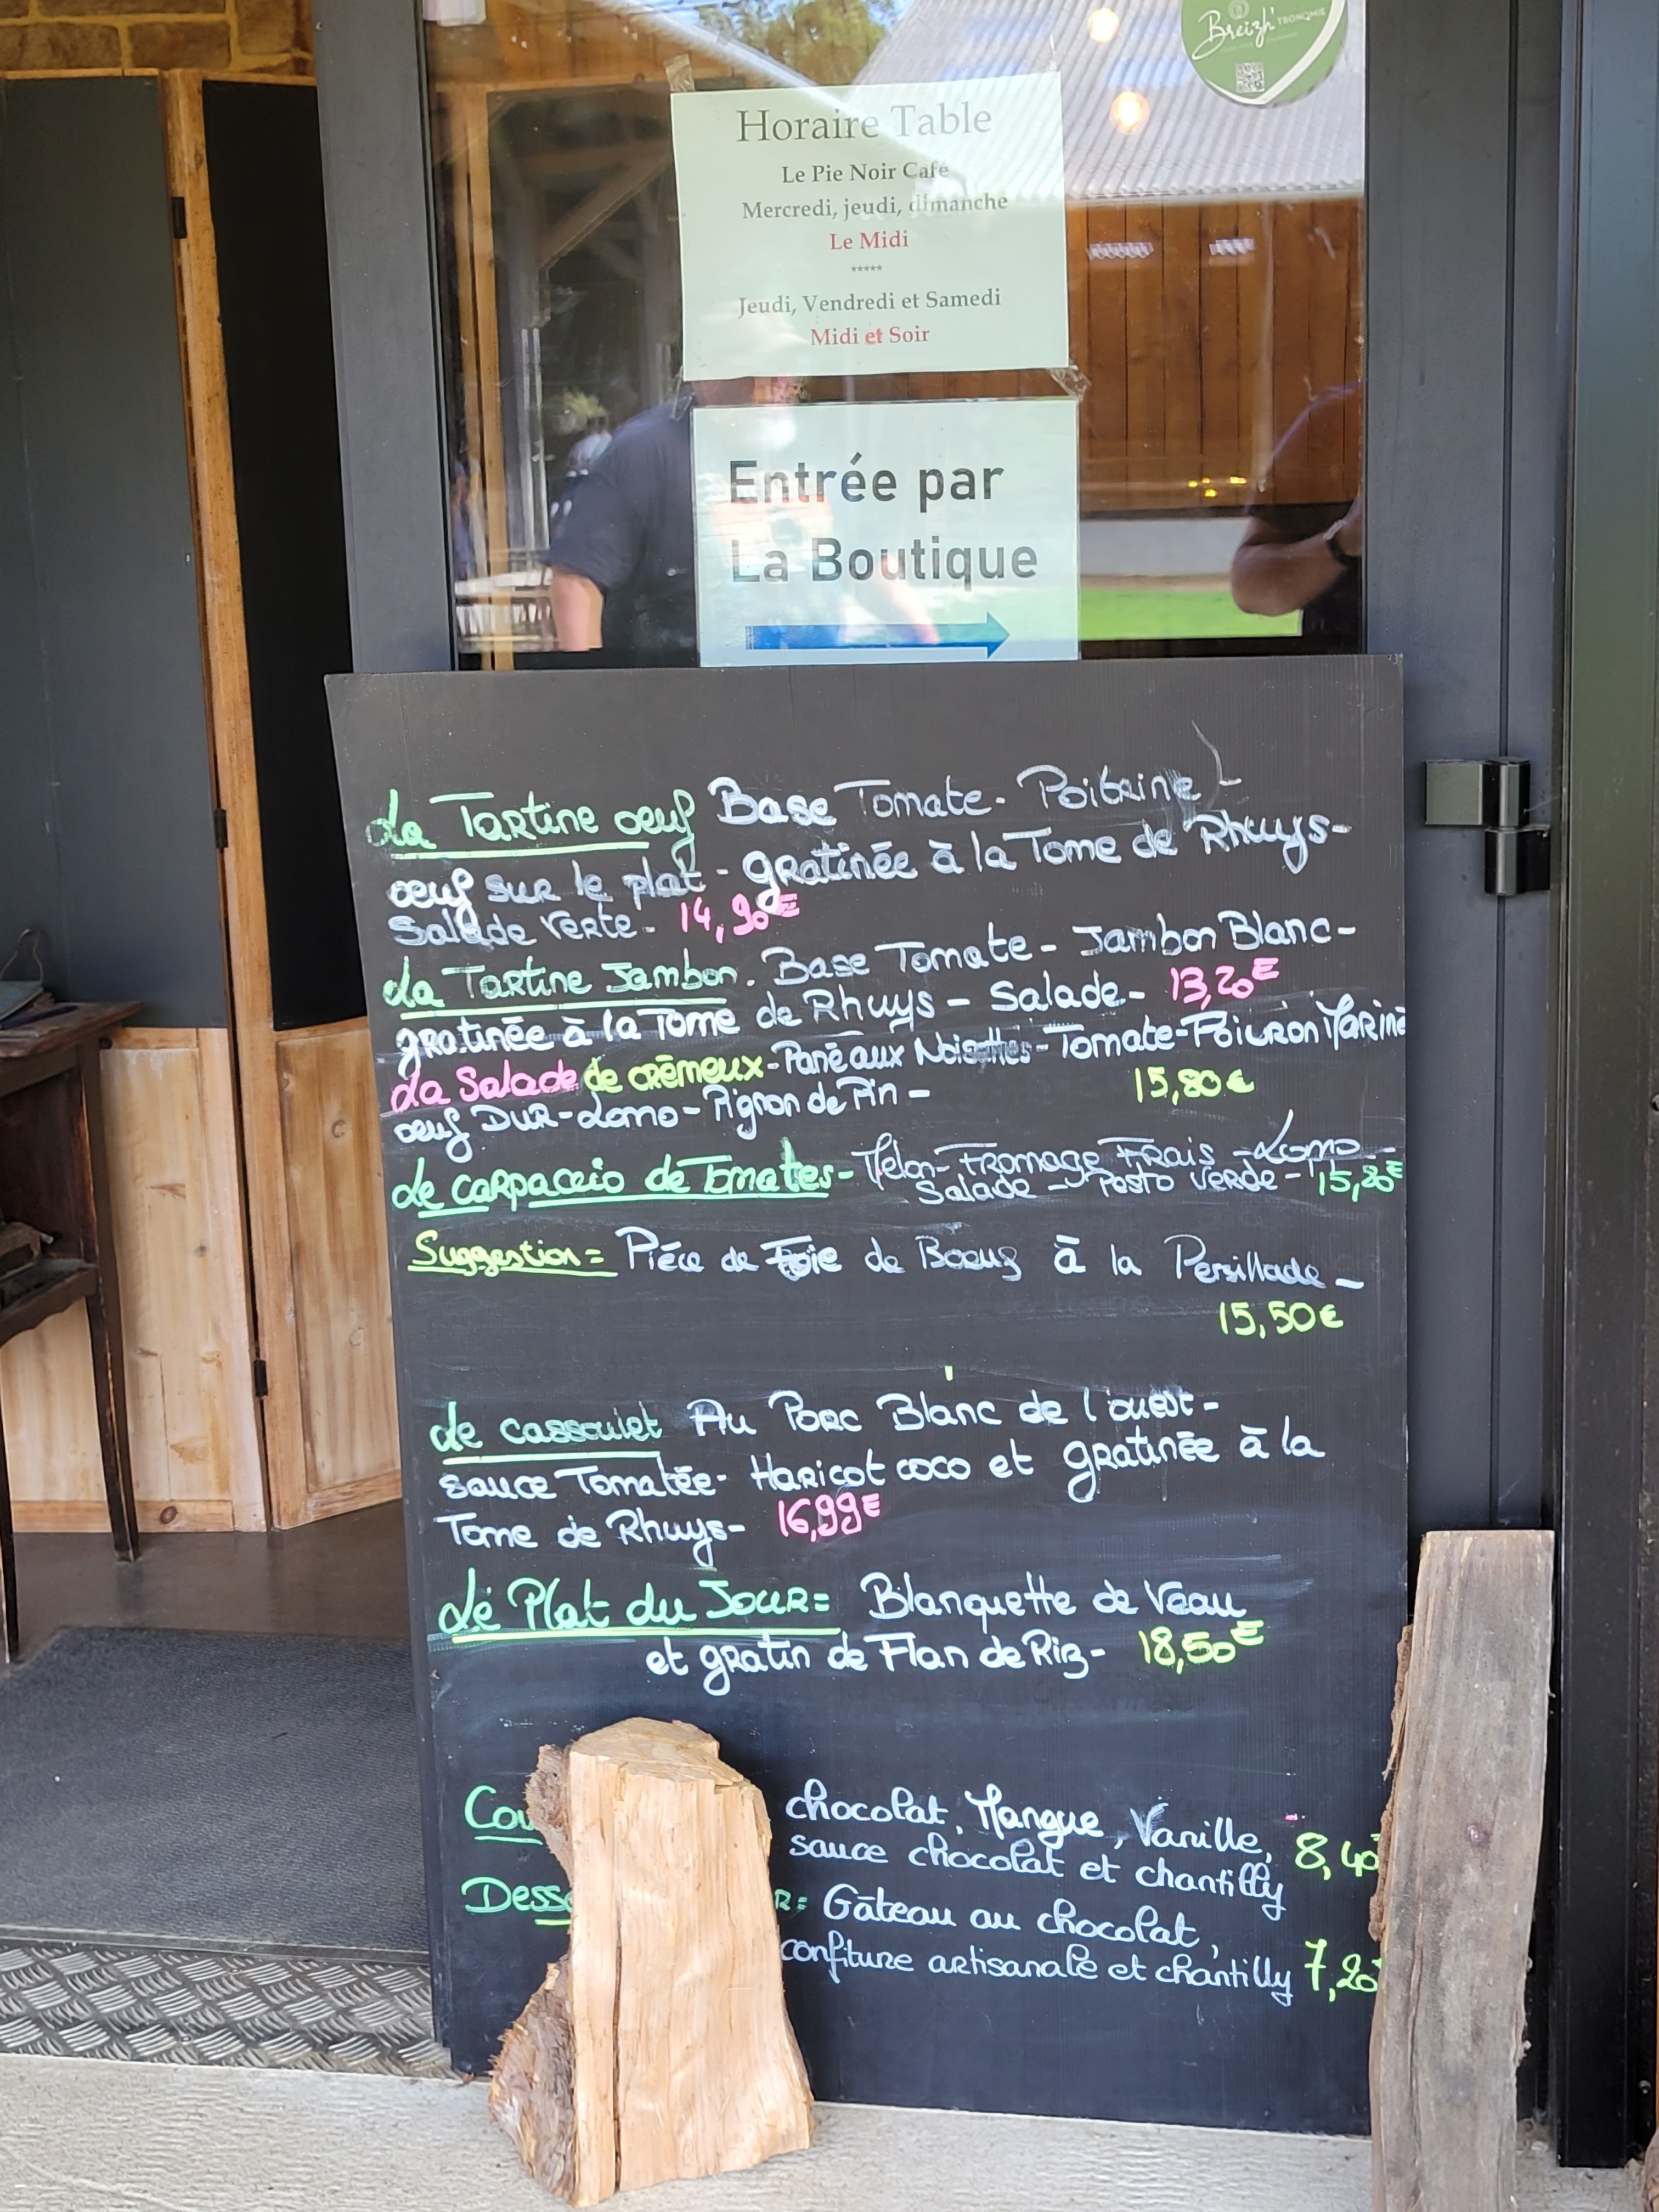 Breizh'TRONOMIE
Horaire Table
Le Pie Noir Café
Mercredi, jeudi, dimanche
Le Midi
*****
Jeudi, Vendredi et Samedi
Midi et Soir
Entrée par
La Boutique
La Tartine oeuf Base Tomate - Poitrine -
oeuf sur le plat - gratinée à la Tome de Rhuys -
Salade verte - 14,90€
La Tartine Jambon. Base Tomate - Jambon Blanc -
gratinée à la Tome de Rhuys - Salade - 13,20€
La Salade de crémeux - Pané aux Noisettes - Tomate - Poivron Mariné
oeuf DUR - Lomo - Pignon de Pin - 15,80€
Le carpaccio de Tomates - Melon - Fromage Frais - Lomo -
Salade - Pesto verde - 15,20€
Suggestion = Piéce de Foie de Boeuf à la Persillade -
15,50€
Le cassoulet Au Porc Blanc de l'ouest -
sauce Tomatée - Haricot coco et gratinée à la
Tome de Rhuys - 16,99€
Le Plat du Jour = Blanquette de Veau
et gratin de Flan de Riz - 18,50€
Cou chocolat, Mangue, Vanille, 8,40
sauce chocolat et chantilly
Desse R = Gâteau au chocolat,
confiture artisanale et chantilly 7,20